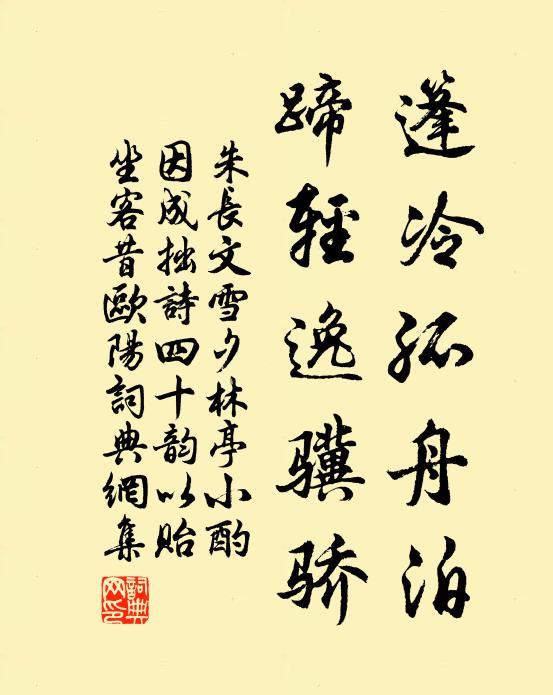 篷冷孤舟泊
蹄輕逸骥骄
朱長文雪夕林亭小酌
因成拙詩四十韵以貽
坐客昔歐陽詞典網集
詞典
网印